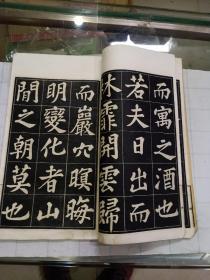 而寓之酒也
若夫日出而
林霏開雲歸
而巖穴暝晦
明變化者山
間之朝莫也